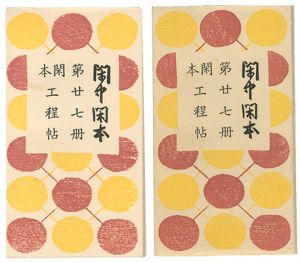 閑中閑本
第廿七册
閑工程帖
本
閑中閑本
第廿七册
閑工程帖
本